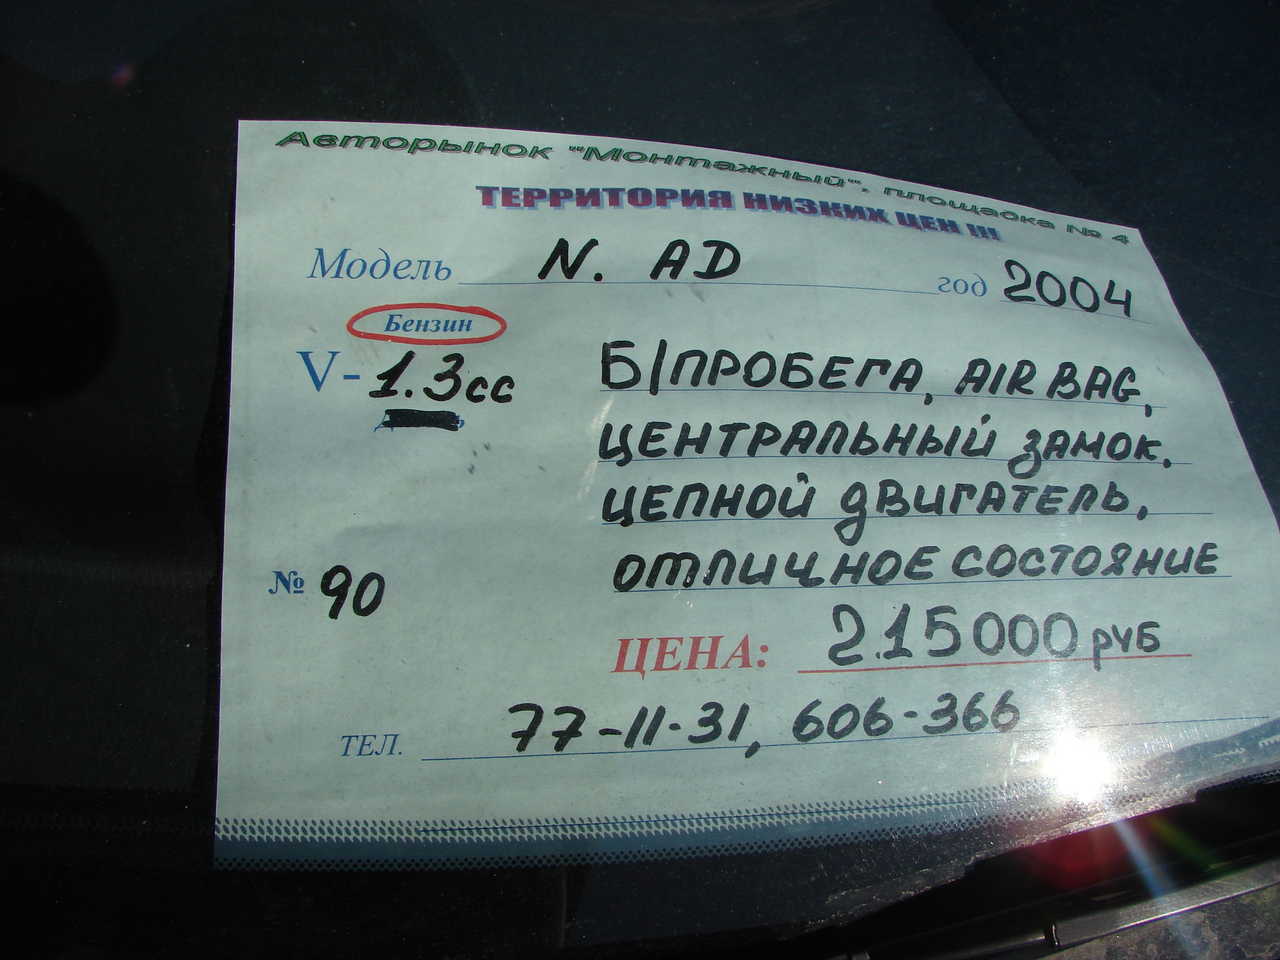 Авторынок "Монтажный", площадка № 4
ТЕРРИТОРИЯ НИЗКИХ ЦЕН !!!
Модель N. AD год 2004
Бензин
V- 1.3сс
Б/ПРОБЕГА, AIR BAG,
ЦЕНТРАЛЬНЫЙ ЗАМОК.
ЦЕПНОЙ ДВИГАТЕЛЬ,
ОТЛИЧНОЕ СОСТОЯНИЕ
№ 90
ЦЕНА: 215000 РУБ
ТЕЛ. 77-11-31, 606-366